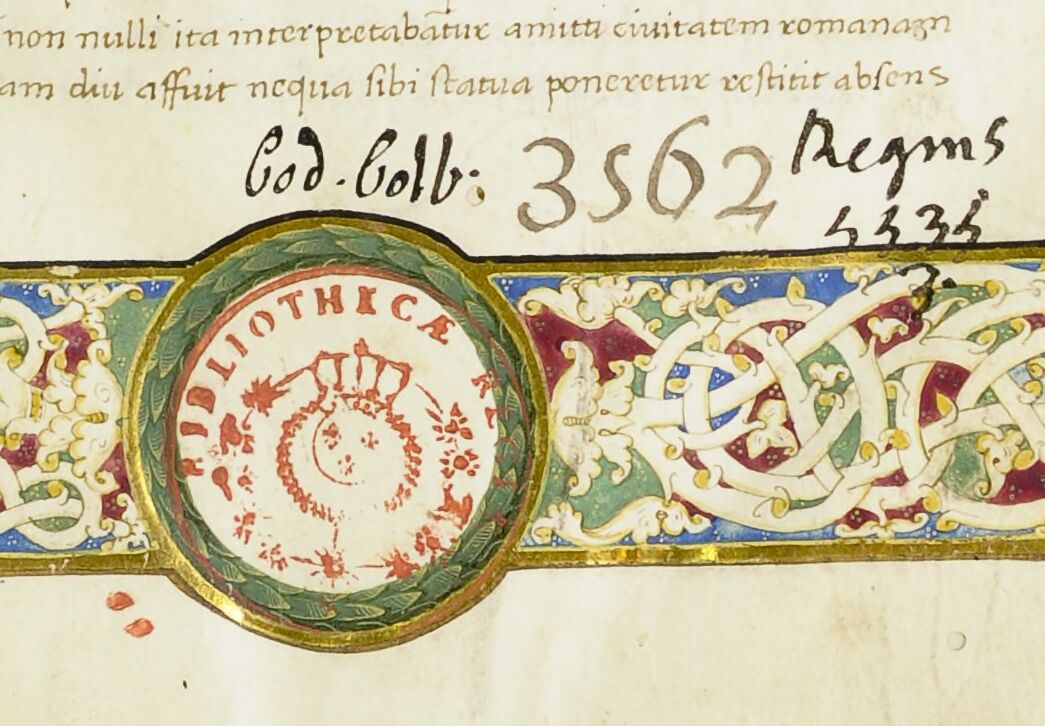 non nulli ita interpretabātur amitti ciuitatem romanam
am diu affuit nequa sibi statua poneretur restitit absens
Cod. Colb. 3562 Regius
5535
2.
BIBLIOTHECÆ RE